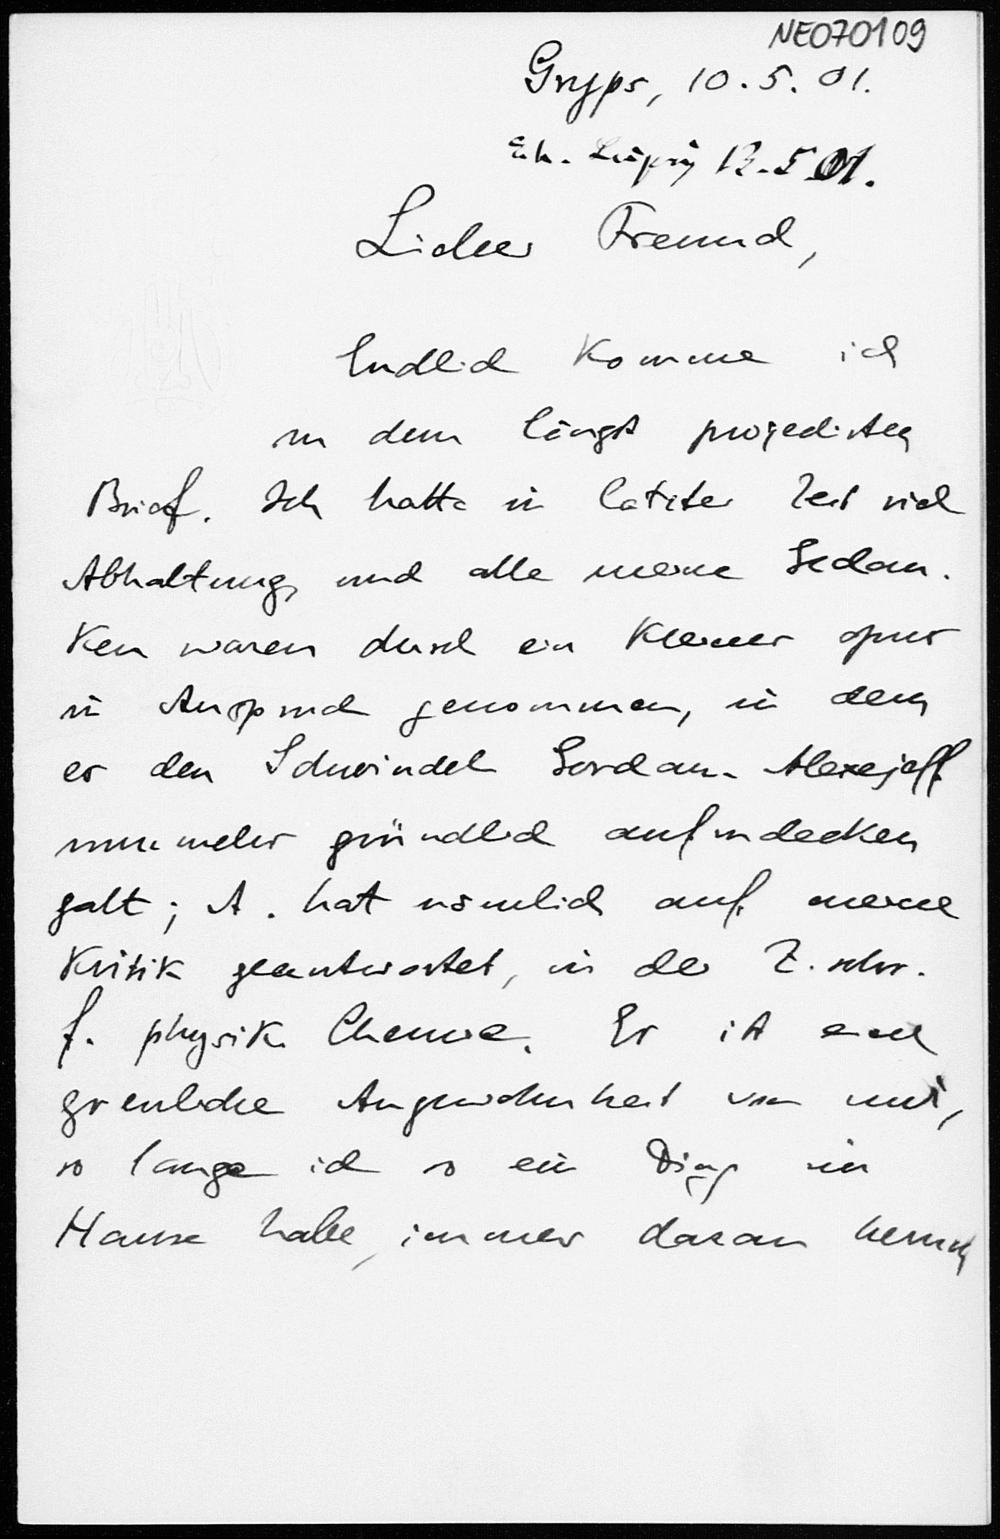 NE070109
Gryps, 10.5.01.
Eh. Leipzig 12.5.01.
Lieber Freund,
Endlich komme ich
zu dem längst projectirten
Brief. Ich hatte in letzter Zeit viel
Abhaltung, und alle meine Gedan-
ken waren durch ein kleines opus
in Anspruch genommen, in dem
es den Schwindel Gordan-Alexejeff
nunmehr gründlich aufzudecken
galt; A. hat nämlich auf meine
Kritik geantwortet, in der Z.schr.
f. physik. Chemie. Es ist eine
greuliche Angewohnheit von mir,
so lange ich so ein Ding im
Hause habe, immer daran herum